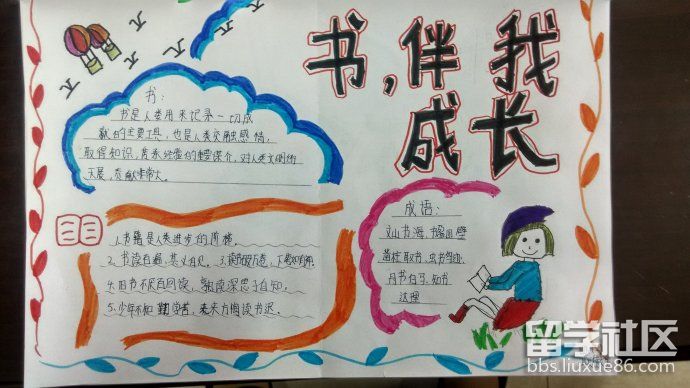 书,伴我
成长
书:
书是人类用来记录一切成
就的主要工具,也是人类交融感情,
取得知识,传承经验的重要媒介,对人类文明的
发展,贡献
书籍是人类进步的阶梯。
2. 书读百遍,其义自见。3. 读书破万卷,下笔如有神。
4. 旧书不厌百回读,熟读深思子自知。
5. 少年不知勤学苦,老来方悔读书迟。
成语:
文山书海,凿壁
书
丹书白马,知书
达理
留学社区
bbs.liuxue86.com